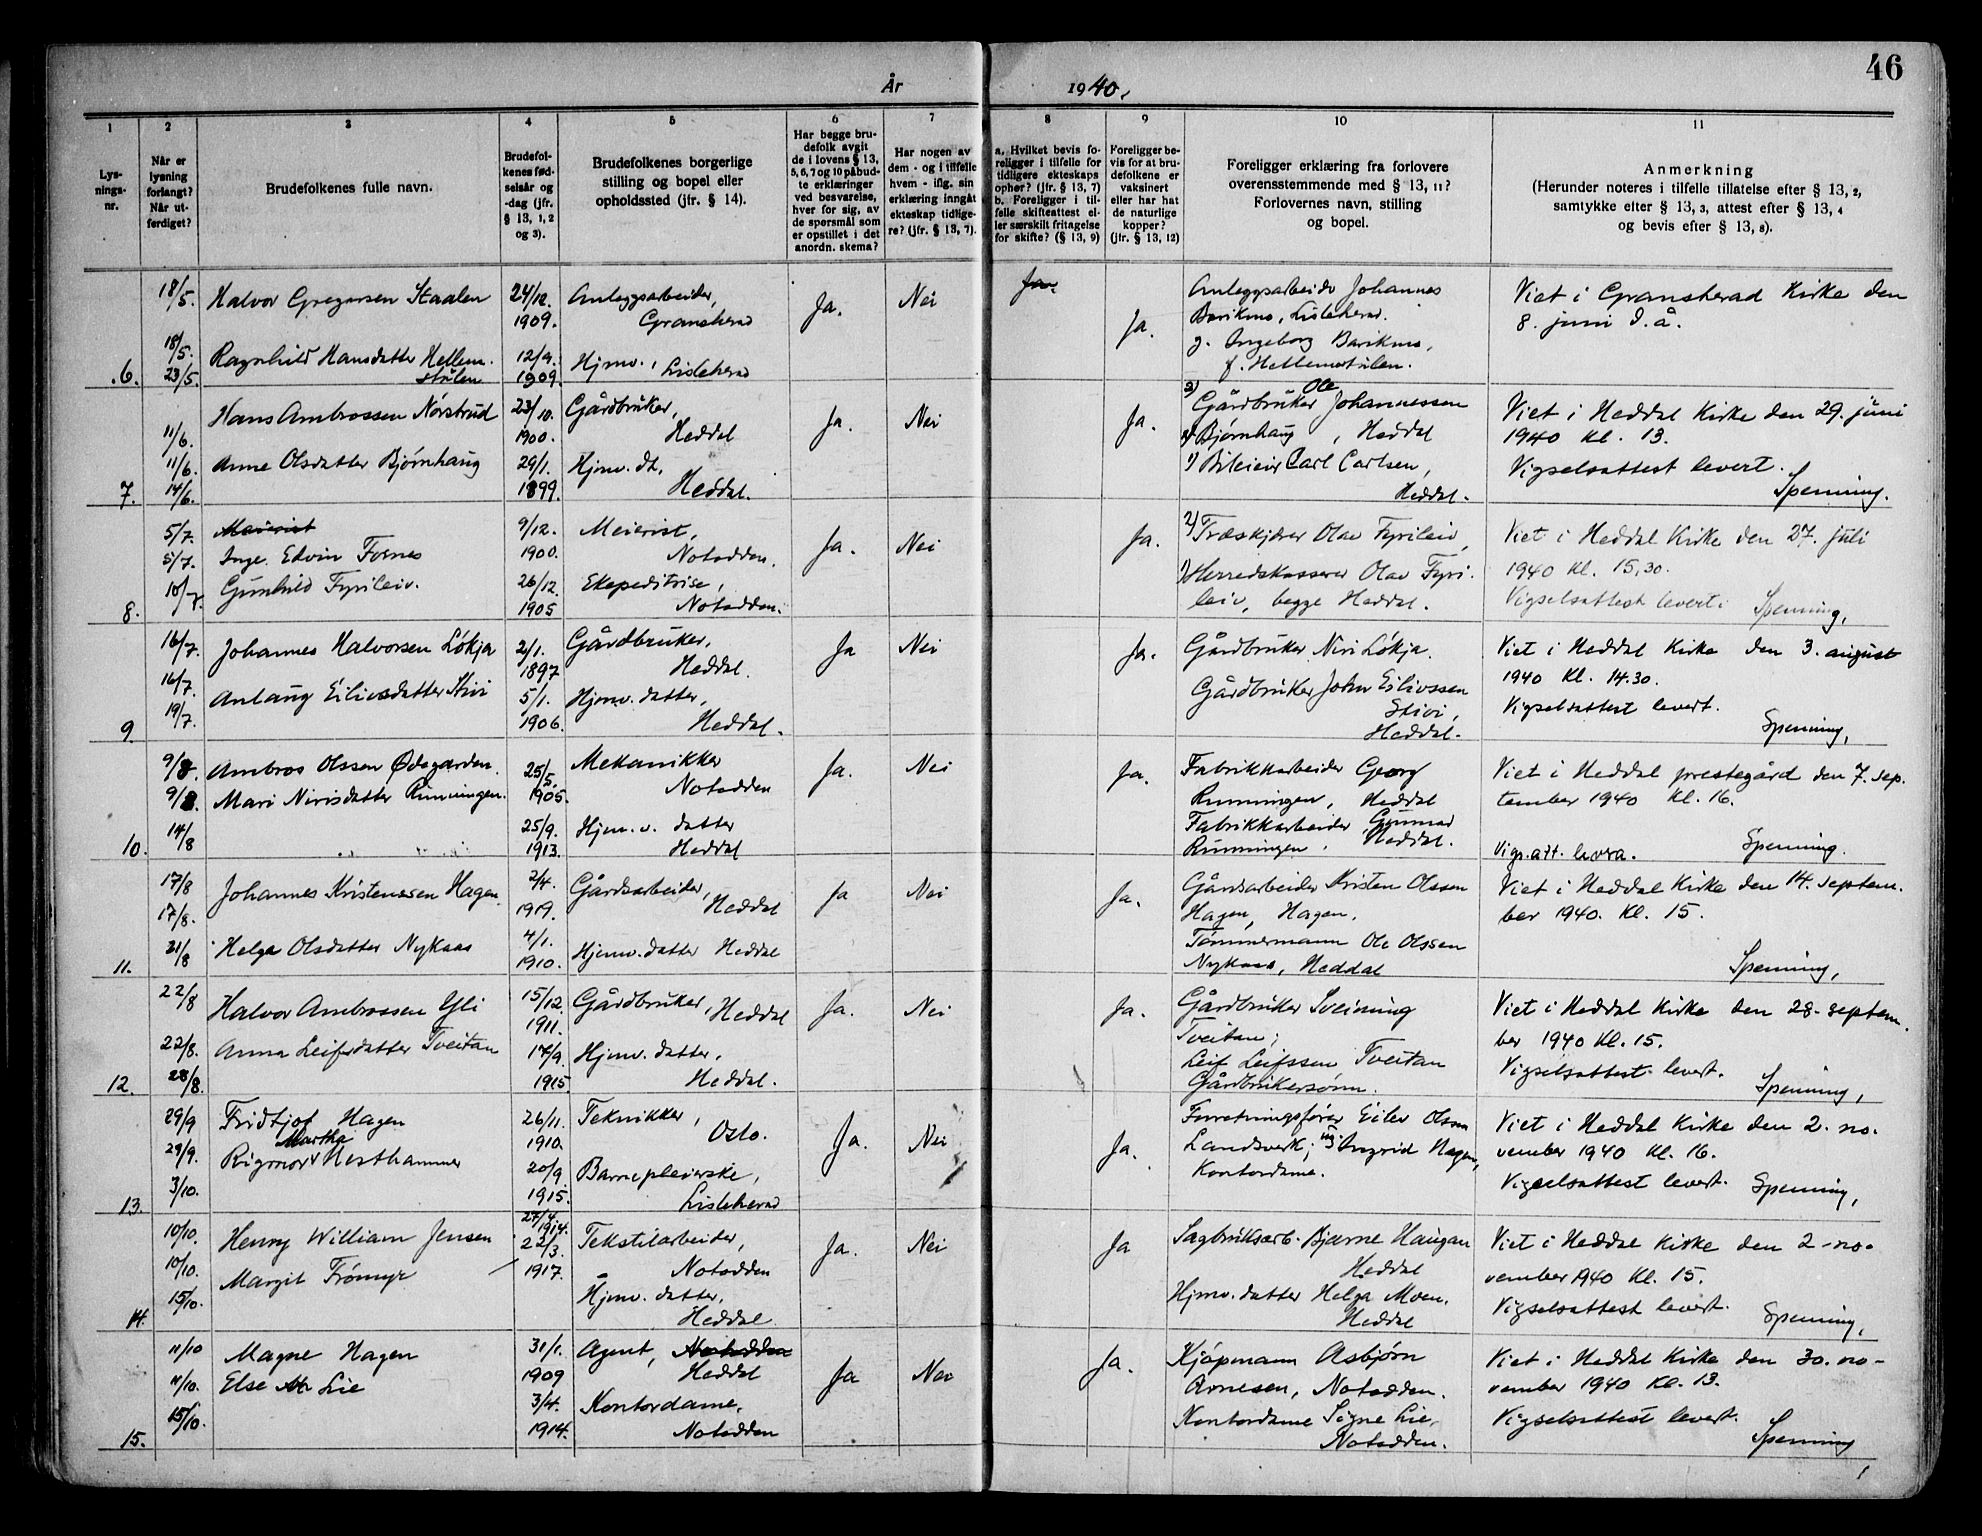 46
År 1940.
1 2 3 4 5 6 7 8 9 10 11
Lysnings-nr.
Når er lysning forlangt? Når utferdiget?
Brudefolkenes fulle navn.
Brudefolkenes fødselsår og -dag (jfr. § 13, 1, 2 og 3).
Brudefolkenes borgerlige stilling og bopel eller opholdssted (jfr. § 14).
Har begge brudefolk avgit de i lovens § 13, 5, 6, 7 og 10 påbudte erklæringer ved besvarelse, hver for sig, av de spørsmål som er opstillet i det anordn. skema?
Har nogen av dem - og i tilfelle hvem - iflg. sin erklæring inngått ekteskap tidligere? (jfr. § 13, 7).
a. Hvilket bevis foreligger i tilfelle for tidligere ekteskaps ophør? (jfr. § 13, 7) b. Foreligger i tilfelle skifteattest eller særskilt fritagelse for skifte? (§ 13, 9)
Foreligger bevis for at brudefolkene er vaksinert eller har hat de naturlige kopper? (jfr. § 13, 12)
Foreligger erklæring fra forlovere overensstemmende med § 13, 11? Forlovernes navn, stilling og bopel.
Anmerkning (Herunder noteres i tilfelle tillatelse efter § 13, 2, samtykke efter § 13, 3, attest efter § 13, 4 og bevis efter § 13, 8).
6.
18/5.
18/5.
23/5.
Halvor Gregarsen Staalen
Ragnhild Hansdatter Hellem-
stulen
24/12.
1909.
12/9.
1909.
Anleggsarbeider,
Gransherad
Hjmv., Lisleherad
Ja.
Nei
Ja.
Ja.
Anleggsarbeider Johannes
Barikmo, Lisleherad.
g. Ingeborg Barikmo,
f. Hellemstulen.
Viet i Gransherad Kirke den
8. juni d.å.
7.
11/6.
11/6.
14/6.
Hans Ambrossen Nørstrud
Anne Olsdatter Bjørnhaug
23/10.
1900.
29/1.
1899.
Gårdbruker,
Heddal
Hjmv. dt.
Heddal.
Ja.
Nei
Ja.
Ole
2) Gårdbruker Johannessen
Bjørnhaug, Heddal
1) Bileier Carl Carlsen,
Heddal.
Viet i Heddal Kirke den 29. juni
1940 kl. 13.
Vigselsattest levert.
Spenning.
8.
5/7.
5/7.
10/7.
Meierist
Inge. Edvin Fosnes
Gunhild Fyrileiv.
9/12.
1900.
26/12.
1905
Meierist,
Notodden.
Ekspeditrise,
Notodden.
Ja.
Nei
Ja.
2) Træskjærer Olav Fyrileiv,
1) Herredskasserer Olav Fyri-
leiv, begge Heddal.
Viet i Heddal Kirke den 27. juli
1940 kl. 15,30.
Vigselsattest levert.
Spenning,
9.
16/7.
16/7.
19/7.
Johannes Halvorsen Løkja
Anlaug Eilivsdatter Stivi
2/1.
1897
5/1.
1906.
Gårdbruker,
Heddal.
Hjmv. datter,
Heddal.
Ja
Nei
Ja.
Gårdbruker Niri Løkja.
Gårdbruker John Eilivssen
Stivi,
Heddal.
Viet i Heddal Kirke den 3. august
1940 kl. 14.30.
Vigselsattest levert.
Spenning,
10.
9/8.
9/8.
14/8
Ambros Olssen Ødegarden.
Mari Nirisdatter Rinningen.
25/5.
1905.
25/9.
1913.
Mekanikker
Notodden
Hjm. v. datter
Heddal
Ja.
Nei
Ja.
Fabrikkarbeider Georg
Runningen, Heddal
Fabrikkarbeider Gunnar
Runningen, Heddal.
Viet i Heddal prestegård den 7. sep.
tember 1940 kl. 16.
Vigs.att. levra.
Spenning.
11.
17/8
17/8.
21/8
Johannes Kristenssen Hagen.
Helga Olsdatter Nykaas
2/4.
1919.
4/1.
1910.
Gårdsarbeider,
Heddal
Hjemv. datter Heddal
Ja
Nei
Ja.
Gårdsarbeider Kristen Olssen
Hagen, Hagen.
Tømmermann Ole Olssen
Nykaas, Heddal
Viet i Heddal Kirke den 14. septem.
ber 1940. kl. 15.
Spenning,
12.
22/8
22/8.
28/8.
Halvor Ambrossen Yli
Anna Leifsdatter Tveitan
15/12.
1911.
17/9.
1915
Gårdbruker, Heddal
Hjmv. datter,
Heddal.
Ja.
Nei
Ja.
Gårdbruker Sveinung
Tveitan;
Leif Leifssen Tveitan
Gårdbrukersønn.
Viet i Heddal Kirke den 28. septem.
ber 1940 kl. 15.
Vigselsattest levert.
Spenning,
13.
29/9
29/9.
3/10.
Fridtjof Hagen
Martha
Rigmor Nesthammer
26/11.
1910.
20/9
1915.
Teknikker,
Oslo.
Barnepleierske,
Lisleherad
Ja.
Nei
Ja.
Forretningsfører Eilev Olssøn
Landsverk; Ingrid Hagen,
Kontordame.
Viet i Heddal Kirke den 2. no.
vember 1940 kl. 16.
Vigselsattest levert.
Spenning,
14.
10/10.
10/10.
15/10.
Henry William Jensen
Margit Trømyr
27/4
1914.
22/3.
1917.
Tekstilarbeider,
Notodden
Hjmv. datter,
Heddal
Ja.
Nei
Ja
Sagbruksarb. Bjarne Haugan
Heddal
Hjmv. datter Helga Moen.
Heddal
Viet i Heddal Kirke den 2-no-
vember 1940 kl. 15.
Vigselsattest levert.
Spenning,
15.
11/10
11/10.
15/10.
Magne Hagen
Else M Lie
31/1.
1909
3/4.
1914.
Agent, Notodden
Heddal
Kontordame,
Notodden
Ja
Nei
Ja.
Kjøpmann Asbjørn
Arnesen, Notodden.
Kontordame Signe Lie,
Notodden.
Viet i Heddal Kirke den 30. no-
vember 1940 kl. 13.
Vigselsattest levert.
Spenning